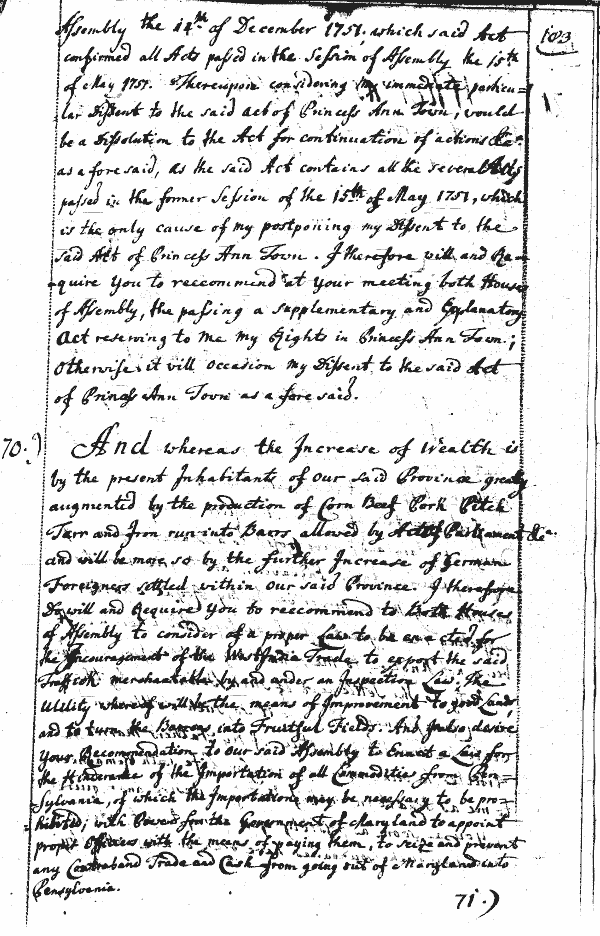 Assembly the 14th of December 1751. which said Act
103
confirmed all Acts passed in the Session of Assembly the 15th
of May 1751. Thereupon considering my immediate particu=
lar Dissent to the said act of Princess Ann Town, would
be a Dissolution to the Act for continuation of actions &ca.
as aforesaid, as the said Act contains all the several Acts
passed in the former Session of the 15th of May 1751, which
is the only cause of my postponing my Dissent to the
said Act of Princess Ann Town. I therefore will and Re=
quire You to reccommend at Your meeting both Houses
of Assembly, the passing a supplementary and Explanatory
Act reserving to Me My Rights in Princess Ann Town;
Otherwise it will occasion my Dissent to the said Act
of Princess Ann Town as a fore said.
70.) And whereas the Increase of Wealth is
by the present Inhabitants of Our said Province greatly
augmented by the production of Corn Beef Pork Pitch
Tarr and Iron run into Barrs allowed by Act of Parliament &ca.
and will be more so by the further Increase of German
Foreigners settled within Our said Province. I therefore
Do will and Require You to reccommend to Both Houses
of Assembly to consider of a proper Law to be enacted for
the Incouragement of the West India Trade to export the said
Traffick merchantable by and under an Inspection Law. The
Utility whereof will be the means of Improvement to good Land,
and to turn the Barrens into Fruitful Fields. And I also desire
Your Reccommendation to Our said Assembly to Ennact a Law for
the Hinderance of the Importation of all Commodities from Pen=
Sylvania, of which the Importations may be necessary to be pro=
hibited, with Power for the Government of Maryland to appoint
proper Officers with the means of paying them, to seize and prevent
any Contraband Trade and Cash from going out of Maryland into
Pensylvania.
71.)